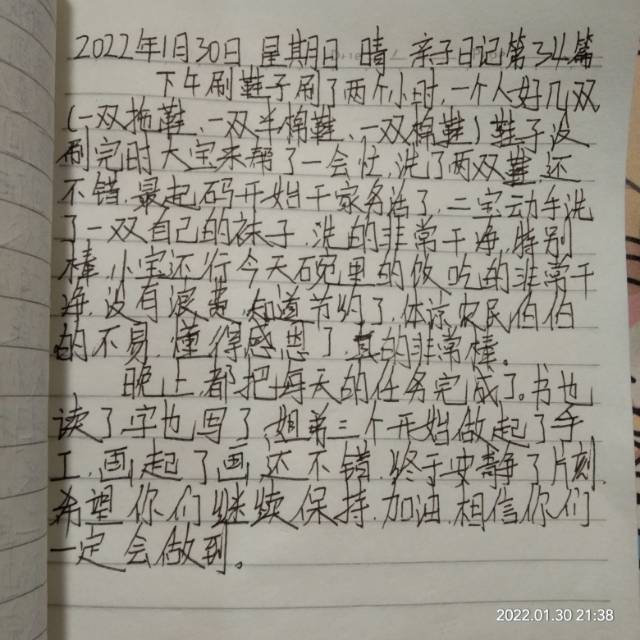 2022年1月30日 星期日 晴 亲子日记第34篇
下午刷鞋子刷了两个小时,一个人好几双
(一双拖鞋、一双半棉鞋、一双棉鞋)鞋子没
刷完时大宝来帮了一会忙,洗了两双鞋还
不错,最起码开始干家务活了,二宝动手洗
了一双自己的袜子,洗的非常干净,特别
棒,小宝还行今天碗里的饭吃的非常干
净,没有浪费,知道节约了,体谅农民伯伯
的不易,懂得感恩了,真的非常棒。
晚上,都把每天的任务完成了。书也
读了,字也写了,姐弟三个开始做起了手
工,画起了画,还不错,终于安静了片刻.
希望你们继续保持,加油,相信你们
一定会做到。
2022.01.30 21:38